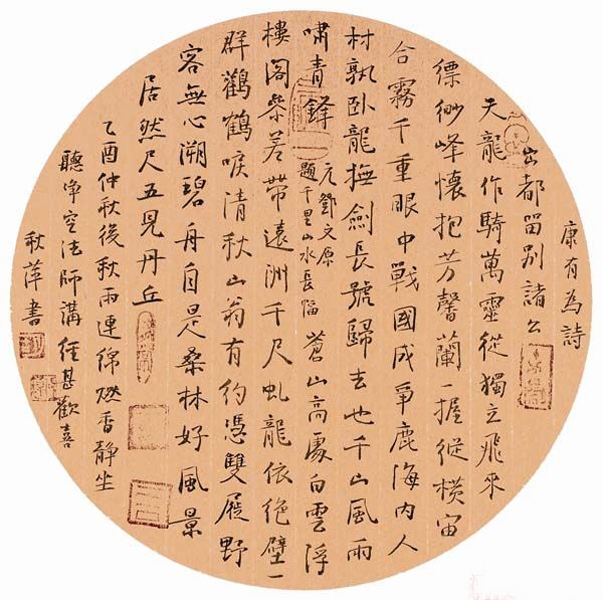 康有為詩
出都留別諸公
天龍作騎萬靈從獨立飛來
縹緲峰懷抱芳馨蘭一握縱橫宙
合霧千重眼中戰國成爭鹿海內人
材孰臥龍撫劍長號歸去也千山風雨
嘯青鋒
元鄧文原
題千里山水長幅
蒼山高處白雲浮
樓閣參差帶遠洲千尺虬龍依絕壁一
群鸛鶴唳清秋山翁有約憑雙屐野
客無心溯碧舟自是桑林好風景
居然尺五見丹丘
乙酉仲秋後秋雨連綿燃香靜坐
聽淨空法師講經甚歡喜
秋萍書